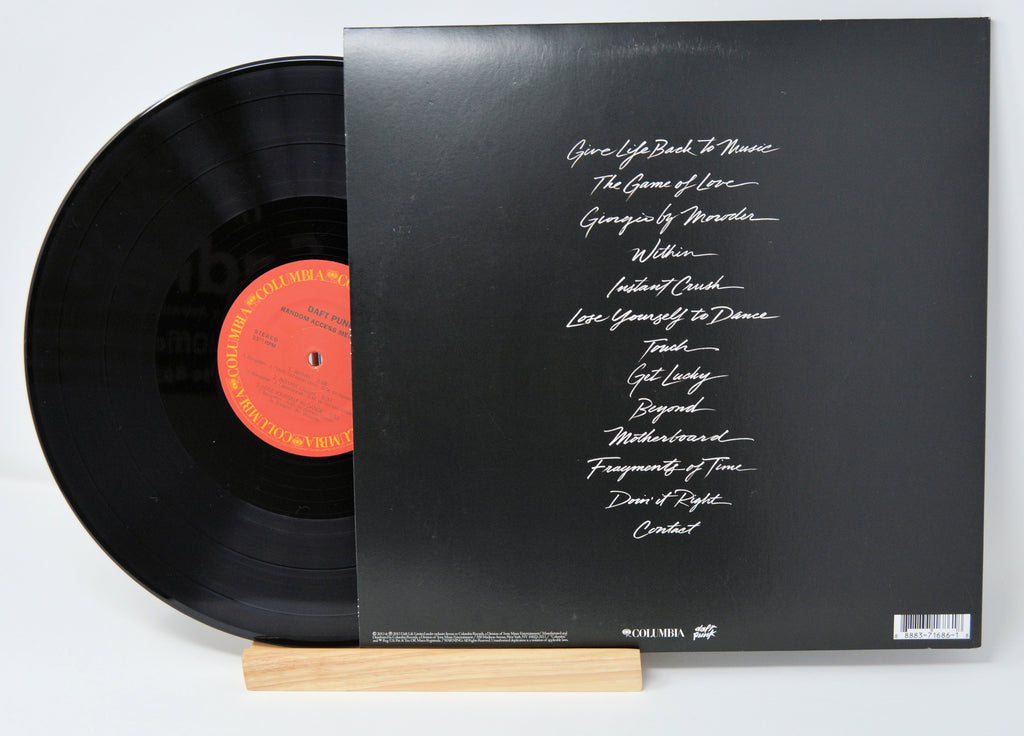 COLUMBIA COLUMBIA COLUMBIA COLUMBIA
DAFT PUNK
RANDOM ACCESS ME
STEREO
33⅓ RPM
Give Life Back to Music
The Game of Love
Giorgio by Moroder
Within
Instant Crush
Lose Yourself to Dance
Touch
Get Lucky
Beyond
Motherboard
Fragments of Time
Doin' it Right
Contact
COLUMBIA
daft punk
8 8883-71686-1 8